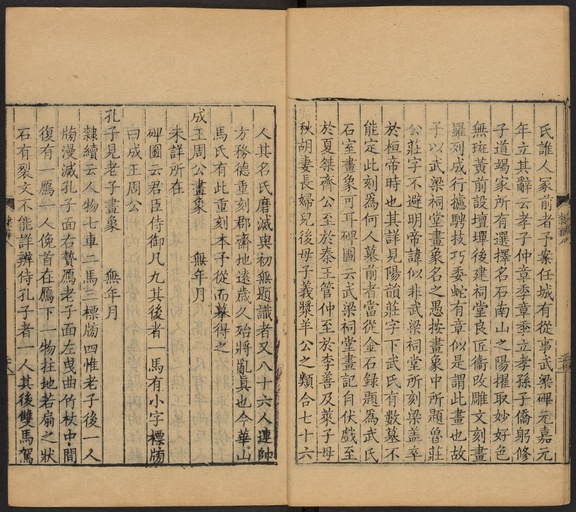 氏誰人冢前者予案任城有從事武梁碑元嘉元
年立其辭云孝子仲章季章季立孝孫子僑躬修
子道竭家所有選擇名石南山之陽擢取妙好色
無斑黃前設壇墠後建祠堂良匠衞改雕文刻畫
羅列成行攄騁技巧委蛇有章似是謂此畫也故
予以武梁祠堂畫象名之愚按畫中所題魯莊
公莊字不避明帝諱似非武梁祠堂所刻梁葢卒
於桓帝時也其詳見陽韻莊字下武氏有數墓不
能定此刻為何人墓前者當從金石錄題為武氏
石室畫象可耳碑圖云武梁祠堂畫記自伏戲至
於夏桀齊公至於秦王管仲至於李善及萊子母
秋胡妻長婦兒後母子義漿羊公之類合七十六
人其名氏磨滅與初無題識者又八十六人連帥
方務德重刻郡齋地遠歲久殆將亂真也今華山
馬氏有此重刻本予從而摹得之
成王周公畫象 無年月
未詳所在
碑圖云君臣侍御凡九其後者一馬有小字標牓
曰成王周公
孔子見老子畫象 無年月
隸續云人物七車二馬三標牓四惟老子後一人
牓漫滅孔子面右贄鴈老子面左曳曲竹杖中間
復有一鴈一人俛首在鴈下一物拄地若扇之狀
石有裂文不能詳辨侍孔子者一人其後雙馬駕